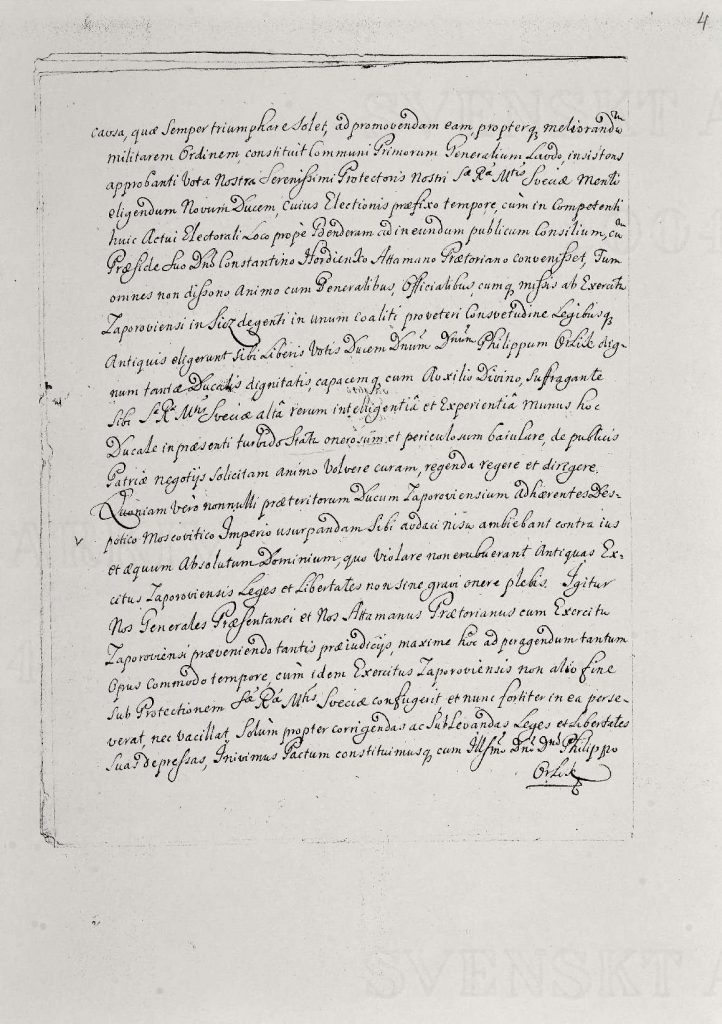 4
causa, quæ semper triumphare solet, ad promovendam eam, propterq3 meliorandũ
militarem Ordinem, constituit Communi Primorum Generalium Laudo, insistens
approbanti Vota Nostra Serenissimi Protectoris Nostri Sæ Ræ Mtis Sveciæ Menti
eligendum Novum Ducem, Cuius Electionis præfixo tempore, cùm in Competenti
huic Actui Electorali Loco propè Benderam ad in eundum publicum Consilium, cũ
Præside Suo Dnō Constantino Hordienko Attamano Prætoriano convenisset, Tum
omnes non dissono Animo cum Generalibus, Officialibus, cumq3 missis ab Exercitu
Zaporoviensi in Siez degenti in unum coaliti pro veteri Consvetudine Legibusq3
Antiquis eligerunt Sibi Liberis Votis Ducem Dnum Dnum Philippum Orlik dig-
num tantæ Ducalis dignitatis, capacemq3 cum Auxilio Divino, suffragante
Sibi Sæ Ræ Mtis Sveciæ altâ rerum intelligentiâ et Experientiâ munus, hoc
Ducale in præsenti turbido Statu onerosum, et periculosum baiulare, de publicis
Patriæ negotijs solicitam animo volvere curam, regenda regere et dirigere.
Quoniam verò nonnulli præteritorum Ducum Zaporoviensium adhærentes Des-
potico Moscovitico Imperio usurpandam Sibi audaci nisu ambiebant contra ius
et æquum Absolutum Dominium, quo violare non erubuerant Antiquas Ex-
citus Zaporoviensis Leges et Libertates non sine gravi onere plebis. Igitur
Nos Generales Præsentanei et Nos Attamanus Prætorianus cum Exercitu
Zaporoviensi præveniendo tantis præiudicijs, maxime hoc ad peragendum tantum
Opus Commodo tempore, cùm idem Exercitus Zaporoviensis non alio fine
sub Protectionem Sæ Ræ Mtis Sveciæ confugerit et nunc fortiter in ea perse-
verat, nec vacillat, Solùm propter corrigendas ac Sublevandas Leges et Libertates
Suas depressas, Inivimus Pactum constituimusq3 cum Illsmo Dno Dno Philippo
Orlik
SVENSKT A